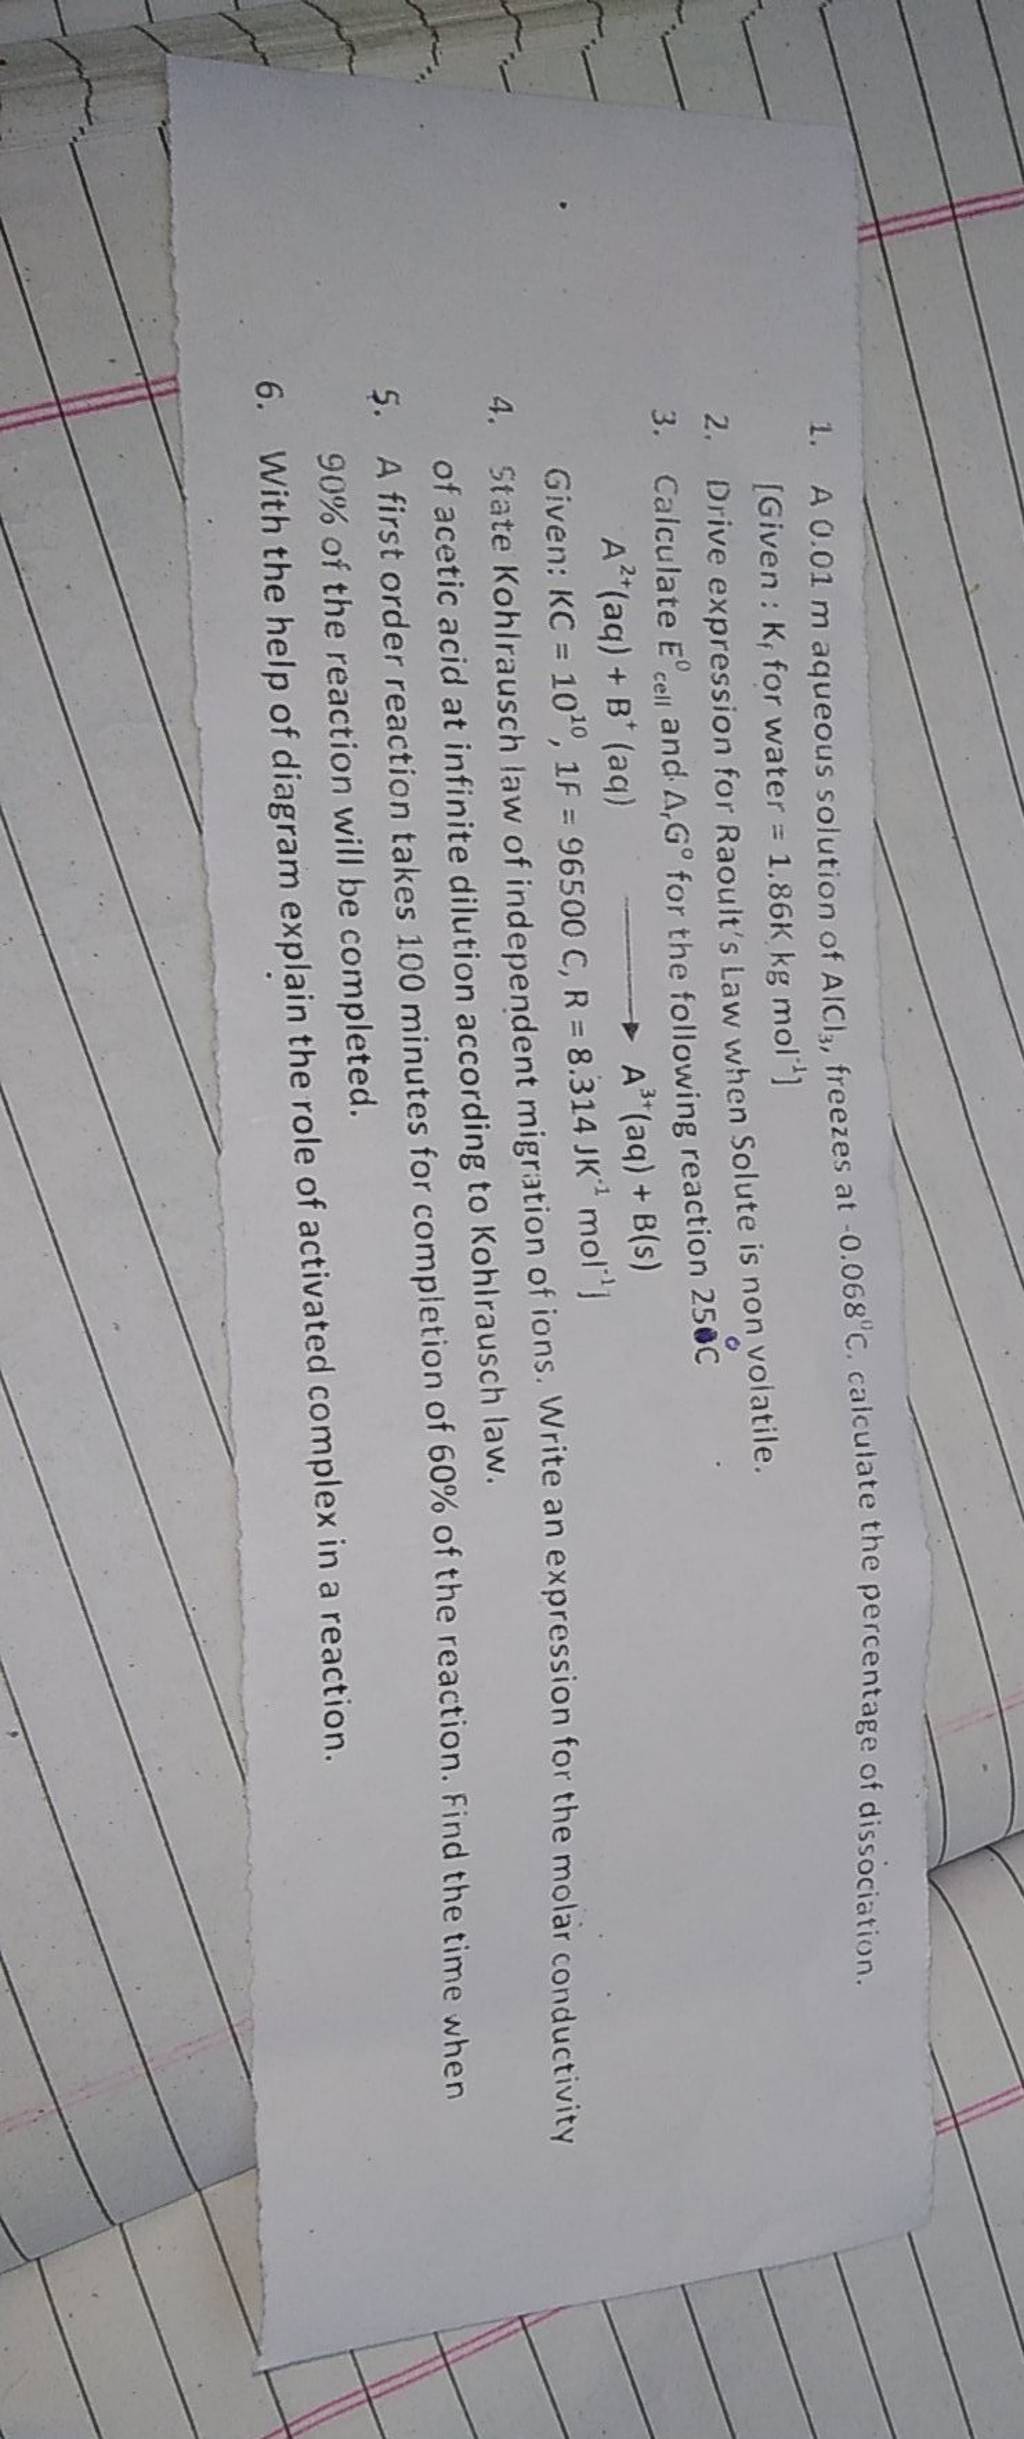 1. A 0.01 m aqueous solution of AlCl₃, freezes at -0.068⁰C. calculate the percentage of dissociation.
[Given : Kf for water = 1.86K kg mol⁻¹]
2. Drive expression for Raoult's Law when Solute is non volatile.
3. Calculate E⁰cell and ΔrG° for the following reaction 25°C
A²⁺(aq) + B⁺ (aq) ⟶ A³⁺(aq) + B(s)
Given: KC = 10¹⁰, 1F = 96500 C, R = 8.314 JK⁻¹ mol⁻¹]
4. State Kohlrausch law of independent migration of ions. Write an expression for the molar conductivity
of acetic acid at infinite dilution according to Kohlrausch law.
5. A first order reaction takes 100 minutes for completion of 60% of the reaction. Find the time when
90% of the reaction will be completed.
6. With the help of diagram explain the role of activated complex in a reaction.